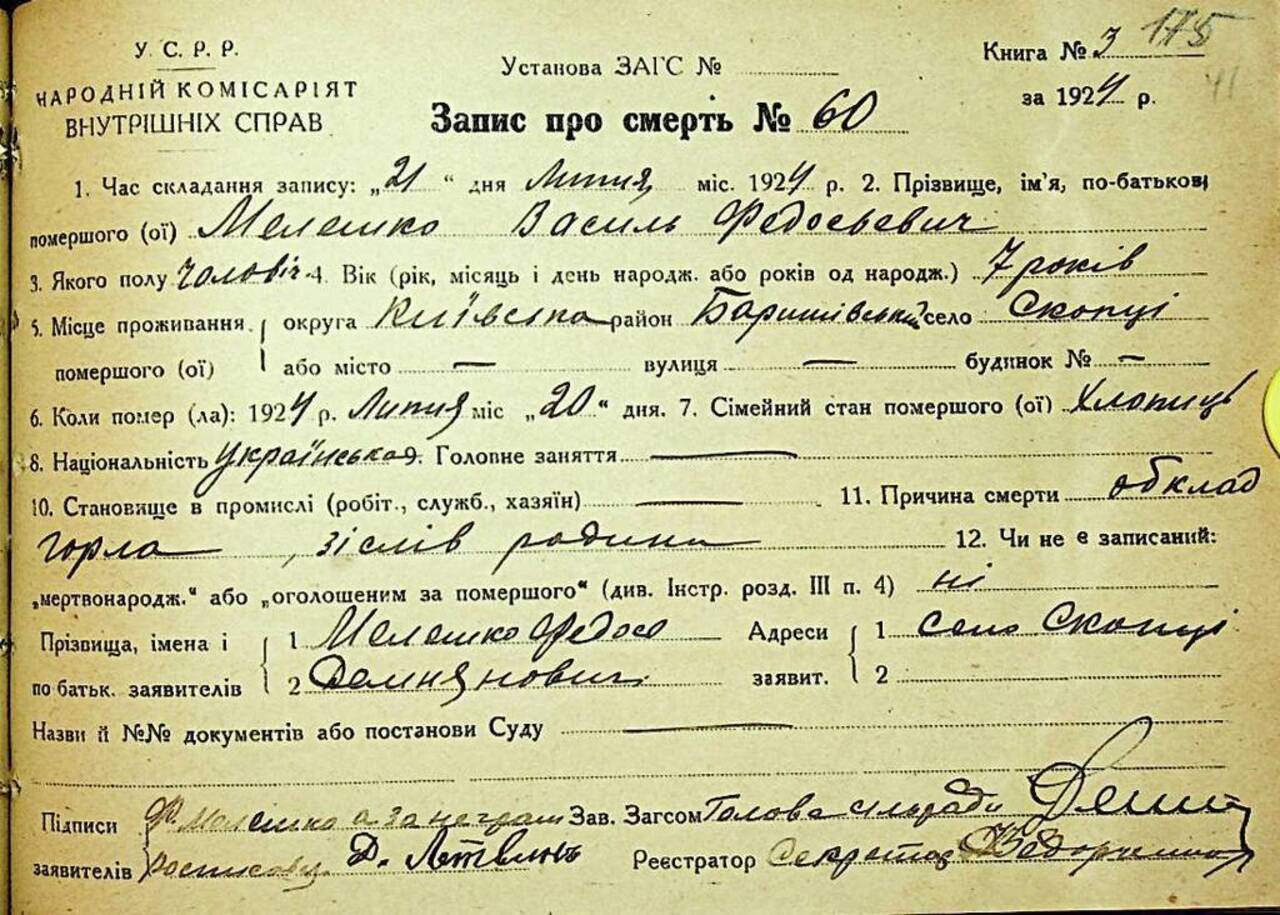 У. С. Р. Р.
НАРОДНІЙ КОМІСАРІЯТ
ВНУТРІШНІХ СПРАВ
Установа ЗАГС №
Книга № 3 175
за 1924 р. 41
Запис про смерть № 60
1. Час складання запису: „21“ дня Липня міс. 1924 р. 2. Прізвище, ім'я, по-батькові
помершого (ої) Мелешко Василь Федосьевич
3. Якого полу чоловіч 4. Вік (рік, місяць і день народж. або років од народж.) 7 років
5. Місце проживання округа Київська район Баришівський село Скопці
помершого (ої) або місто — вулиця — будинок № —
6. Коли помер (ла): 1924 р. Липня міс „20“ дня. 7. Сімейний стан помершого (ої) Хлопиць
8. Національність українська 9. Головне заняття —
10. Становище в промислі (робіт., служб., хазяїн) — 11. Причина смерти обклад
горла, зіслів родини 12. Чи не є записаний:
„мертвонародж.“ або „оголошеним за помершого“ (див. Інстр. розд. III п. 4) ні
Прізвища, імена і 1 Мелешко Федос Адреси 1 село Скопці
по батьк. заявителів 2 Демнянович заявит. 2
Назви й №№ документів або постанови Суду —
Підписи Ф Мелешко а за неграм Зав. Загсом Голова сільради
заявителів Д. Реєстратор Секретар